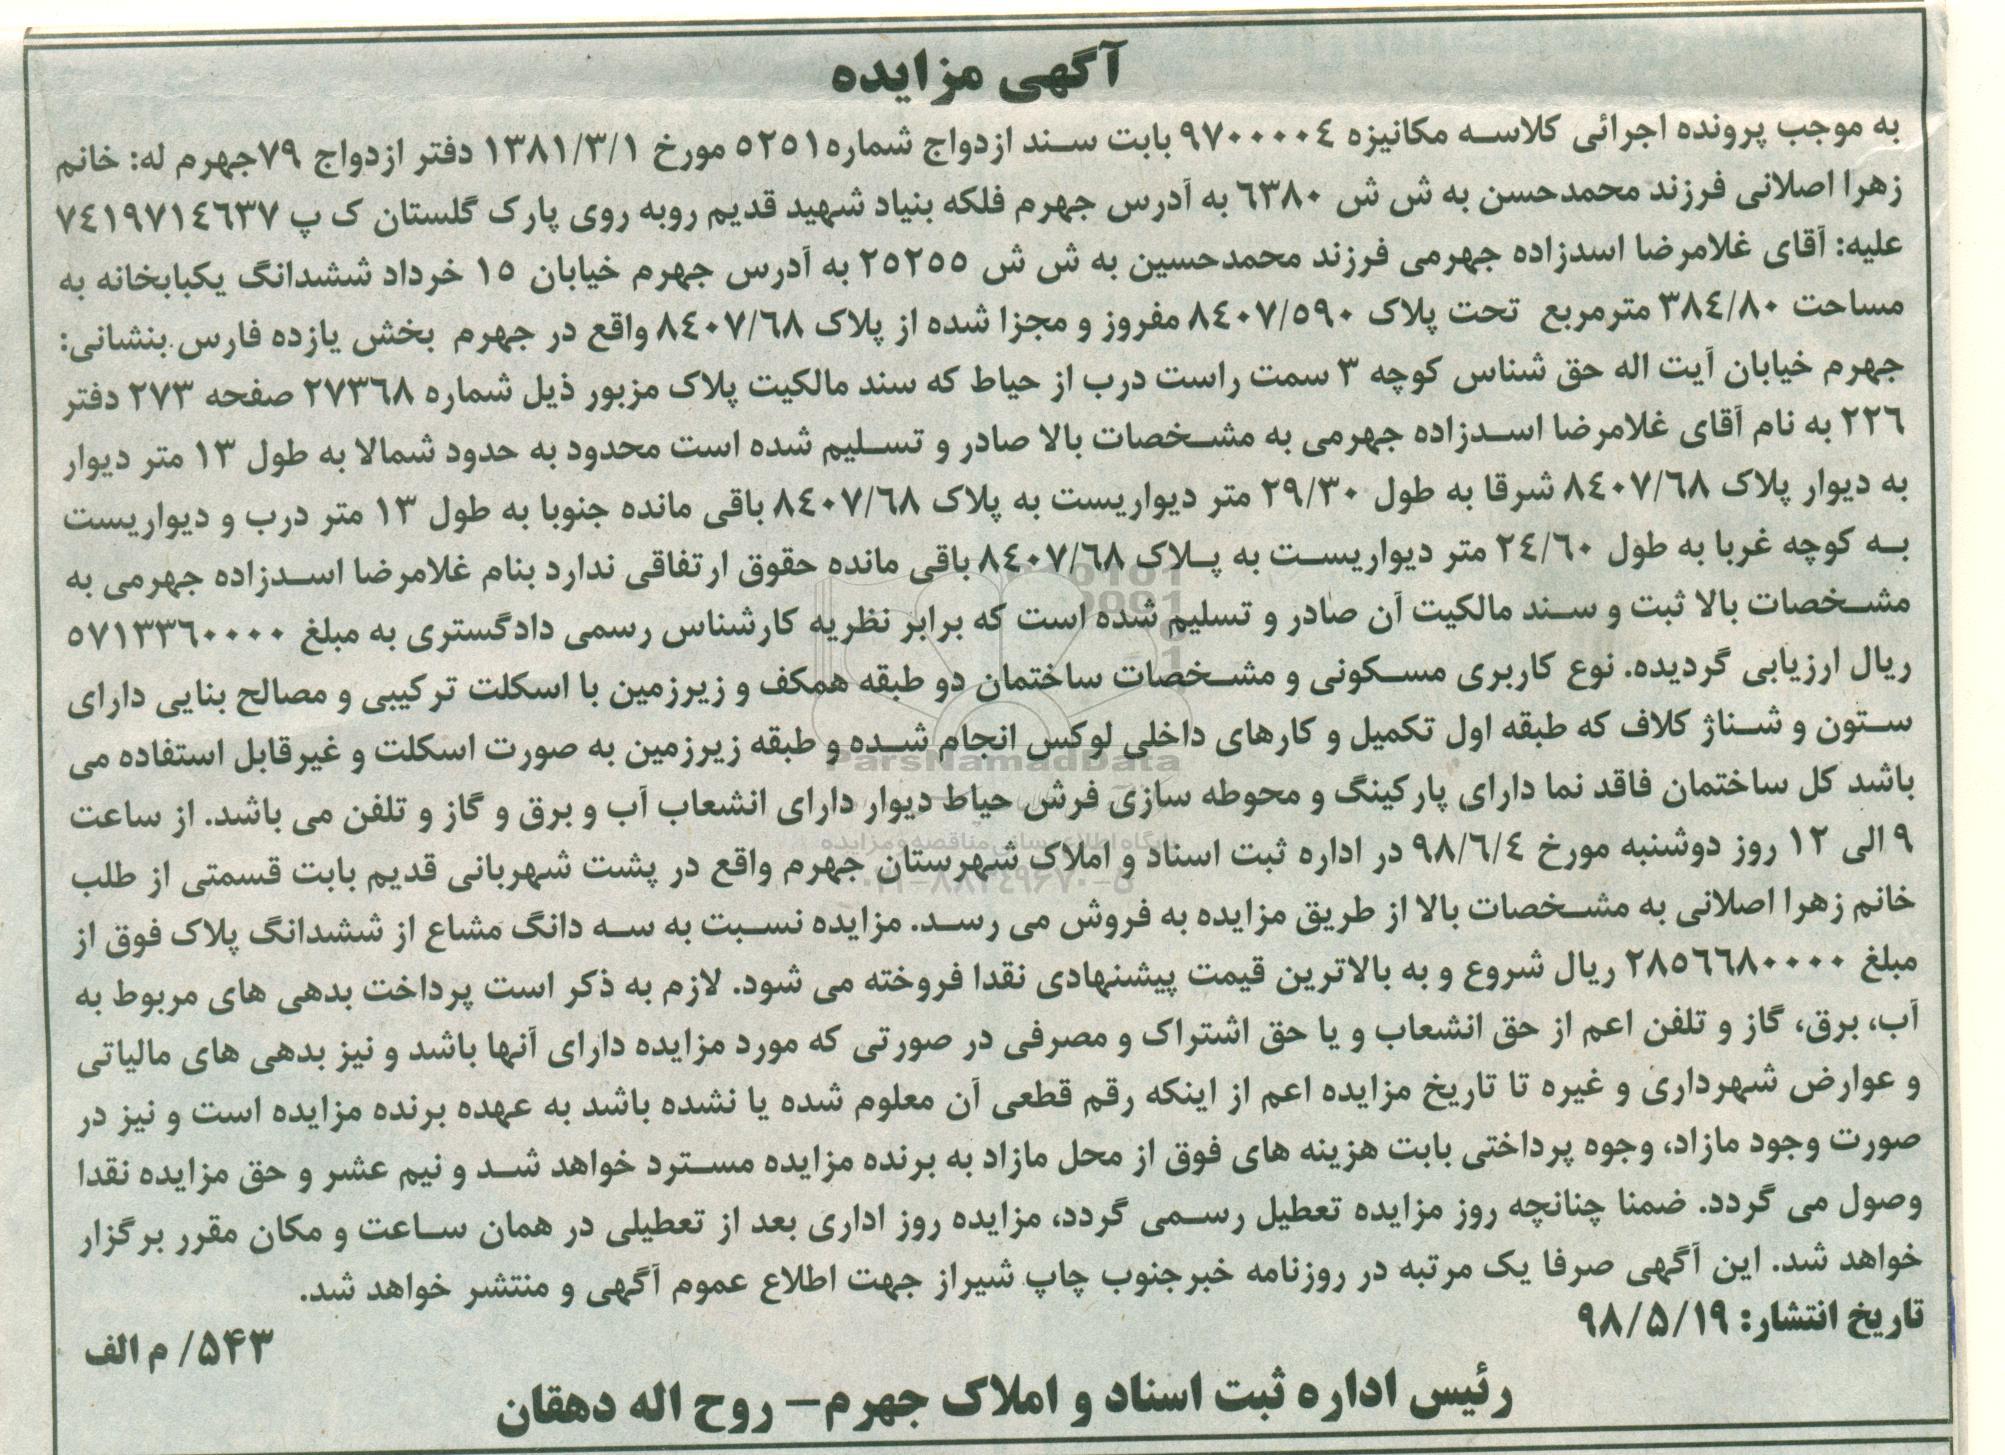 آگهی مزایده
به موجب پرونده اجرائی کلاسه مکانیزه ۹۷۰۰۰۰۴ بابت سند ازدواج شماره۵۲۵۱ مورخ ۱۳۸۱/۳/۱ دفتر ازدواج ۷۹جهرم له: خانم
زهرا اصلانی فرزند محمدحسن به ش ش ۶۳۸۰ به آدرس جهرم فلکه بنیاد شهید قدیم روبه روی پارک گلستان ک پ ۷۴۱۹۷۱۴۶۳۷
علیه: آقای غلامرضا اسدزاده جهرمی فرزند محمدحسین به ش ش ۲۵۲۵۵ به آدرس جهرم خیابان ۱۵ خرداد ششدانگ یکبابخانه به
مساحت ۳۸۴/۸۰ مترمربع تحت پلاک ۸۴۰۷/۵۹۰ مفروز و مجزا شده از پلاک ۸۴۰۷/۶۸ واقع در جهرم بخش یازده فارس بنشانی:
جهرم خیابان آیت اله حق شناس کوچه ۳ سمت راست درب از حیاط که سند مالکیت پلاک مزبور ذیل شماره ۲۷۳۶۸ صفحه ۲۷۳ دفتر
۲۲۶ به نام آقای غلامرضا اسدزاده جهرمی به مشخصات بالا صادر و تسلیم شده است محدود به حدود شمالا به طول ۱۳ متر دیوار
به دیوار پلاک ۸۴۰۷/۶۸ شرقا به طول ۲۹/۳۰ متر دیواریست به پلاک ۸۴۰۷/۶۸ باقی مانده جنوبا به طول ۱۳ متر درب و دیواریست
به کوچه غربا به طول ۲۴/۶۰ متر دیواریست به پلاک ۸۴۰۷/۶۸ باقی مانده حقوق ارتفاقی ندارد بنام غلامرضا اسدزاده جهرمی به
مشخصات بالا ثبت و سند مالکیت آن صادر و تسلیم شده است که برابر نظریه کارشناس رسمی دادگستری به مبلغ ۵۷۱۳۳۶۰۰۰۰
ریال ارزیابی گردیده. نوع کاربری مسکونی و مشخصات ساختمان دو طبقه همکف و زیرزمین با اسکلت ترکیبی و مصالح بنایی دارای
ستون و شناژ کلاف که طبقه اول تکمیل و کارهای داخلی لوکس انجام شده و طبقه زیرزمین به صورت اسکلت و غیرقابل استفاده می
باشد کل ساختمان فاقد نما دارای پارکینگ و محوطه سازی فرش حیاط دیوار دارای انشعاب آب و برق و گاز و تلفن می باشد. از ساعت
۹ الی ۱۲ روز دوشنبه مورخ ۹۸/۶/۴ در اداره ثبت اسناد و املاک شهرستان جهرم واقع در پشت شهربانی قدیم بابت قسمتی از طلب
خانم زهرا اصلانی به مشخصات بالا از طریق مزایده به فروش می رسد. مزایده نسبت به سه دانگ مشاع از ششدانگ پلاک فوق از
مبلغ ۲۸۵۶۶۸۰۰۰۰ ریال شروع و به بالاترین قیمت پیشنهادی نقدا فروخته می شود. لازم به ذکر است پرداخت بدهی های مربوط به
آب، برق، گاز و تلفن اعم از حق انشعاب و یا حق اشتراک و مصرفی در صورتی که مورد مزایده دارای آنها باشد و نیز بدهی های مالیاتی
و عوارض شهرداری و غیره تا تاریخ مزایده اعم از اینکه رقم قطعی آن معلوم شده یا نشده باشد به عهده برنده مزایده است و نیز در
صورت وجود مازاد، وجوه پرداختی بابت هزینه های فوق از محل مازاد به برنده مزایده مسترد خواهد شد و نیم عشر و حق مزایده نقدا
وصول می گردد. ضمنا چنانچه روز مزایده تعطیل رسمی گردد، مزایده روز اداری بعد از تعطیلی در همان ساعت و مکان مقرر برگزار
خواهد شد. این آگهی صرفا یک مرتبه در روزنامه خبرجنوب چاپ شیراز جهت اطلاع عموم آگهی و منتشر خواهد شد.
تاریخ انتشار: ۹۸/۵/۱۹
۵۴۳/ م الف
رئیس اداره ثبت اسناد و املاک جهرم– روح اله دهقان
ParsNamadData
پایگاه اطلاع رسانی مناقصه و مزایده
۰۲۱-۸۸۳۴۹۶۷۰-۵